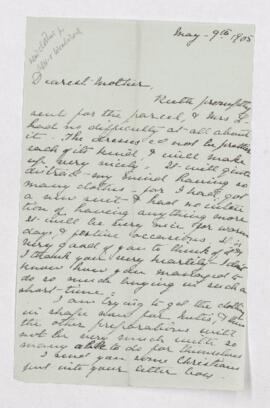 May - 9th 1905
Dearest Mother,
Ruth promptly
sent for the parcel & Mrs
had no difficulty at all about
it. The dresses could not be prettier
each of its kind, & will make
up very nicely. It will quite
distract my mind having so
many clothes - for I had got
a new suit & had no inten
tion of having anything more
It will be very nice for warm
days, & festive occasions. It is
very good of you to think of it &
I thank you very heartily. I don't
know how you managed to
do so much buying in such a
short time.
I am trying to get the clothes
in shape now for
the other preparations will
not be very much with so
many able to do for themselves
I send you some Christians
put into your letter box.